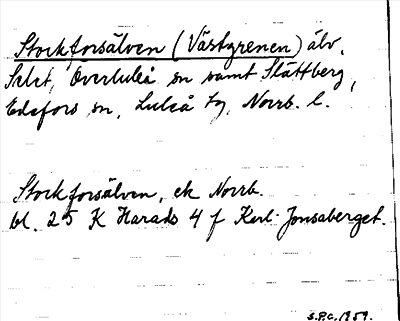 Stockforsälven (Västgrenen) älv,
Selet, Överluleå sn samt Slättberg,
Edefors sn, Luleå tg, Norrb. l.
Stockforsälven, ek Norrb.
bl. 25 K Harads 4 f Kerl-Jonsaberget.
S.P.C. 1959.